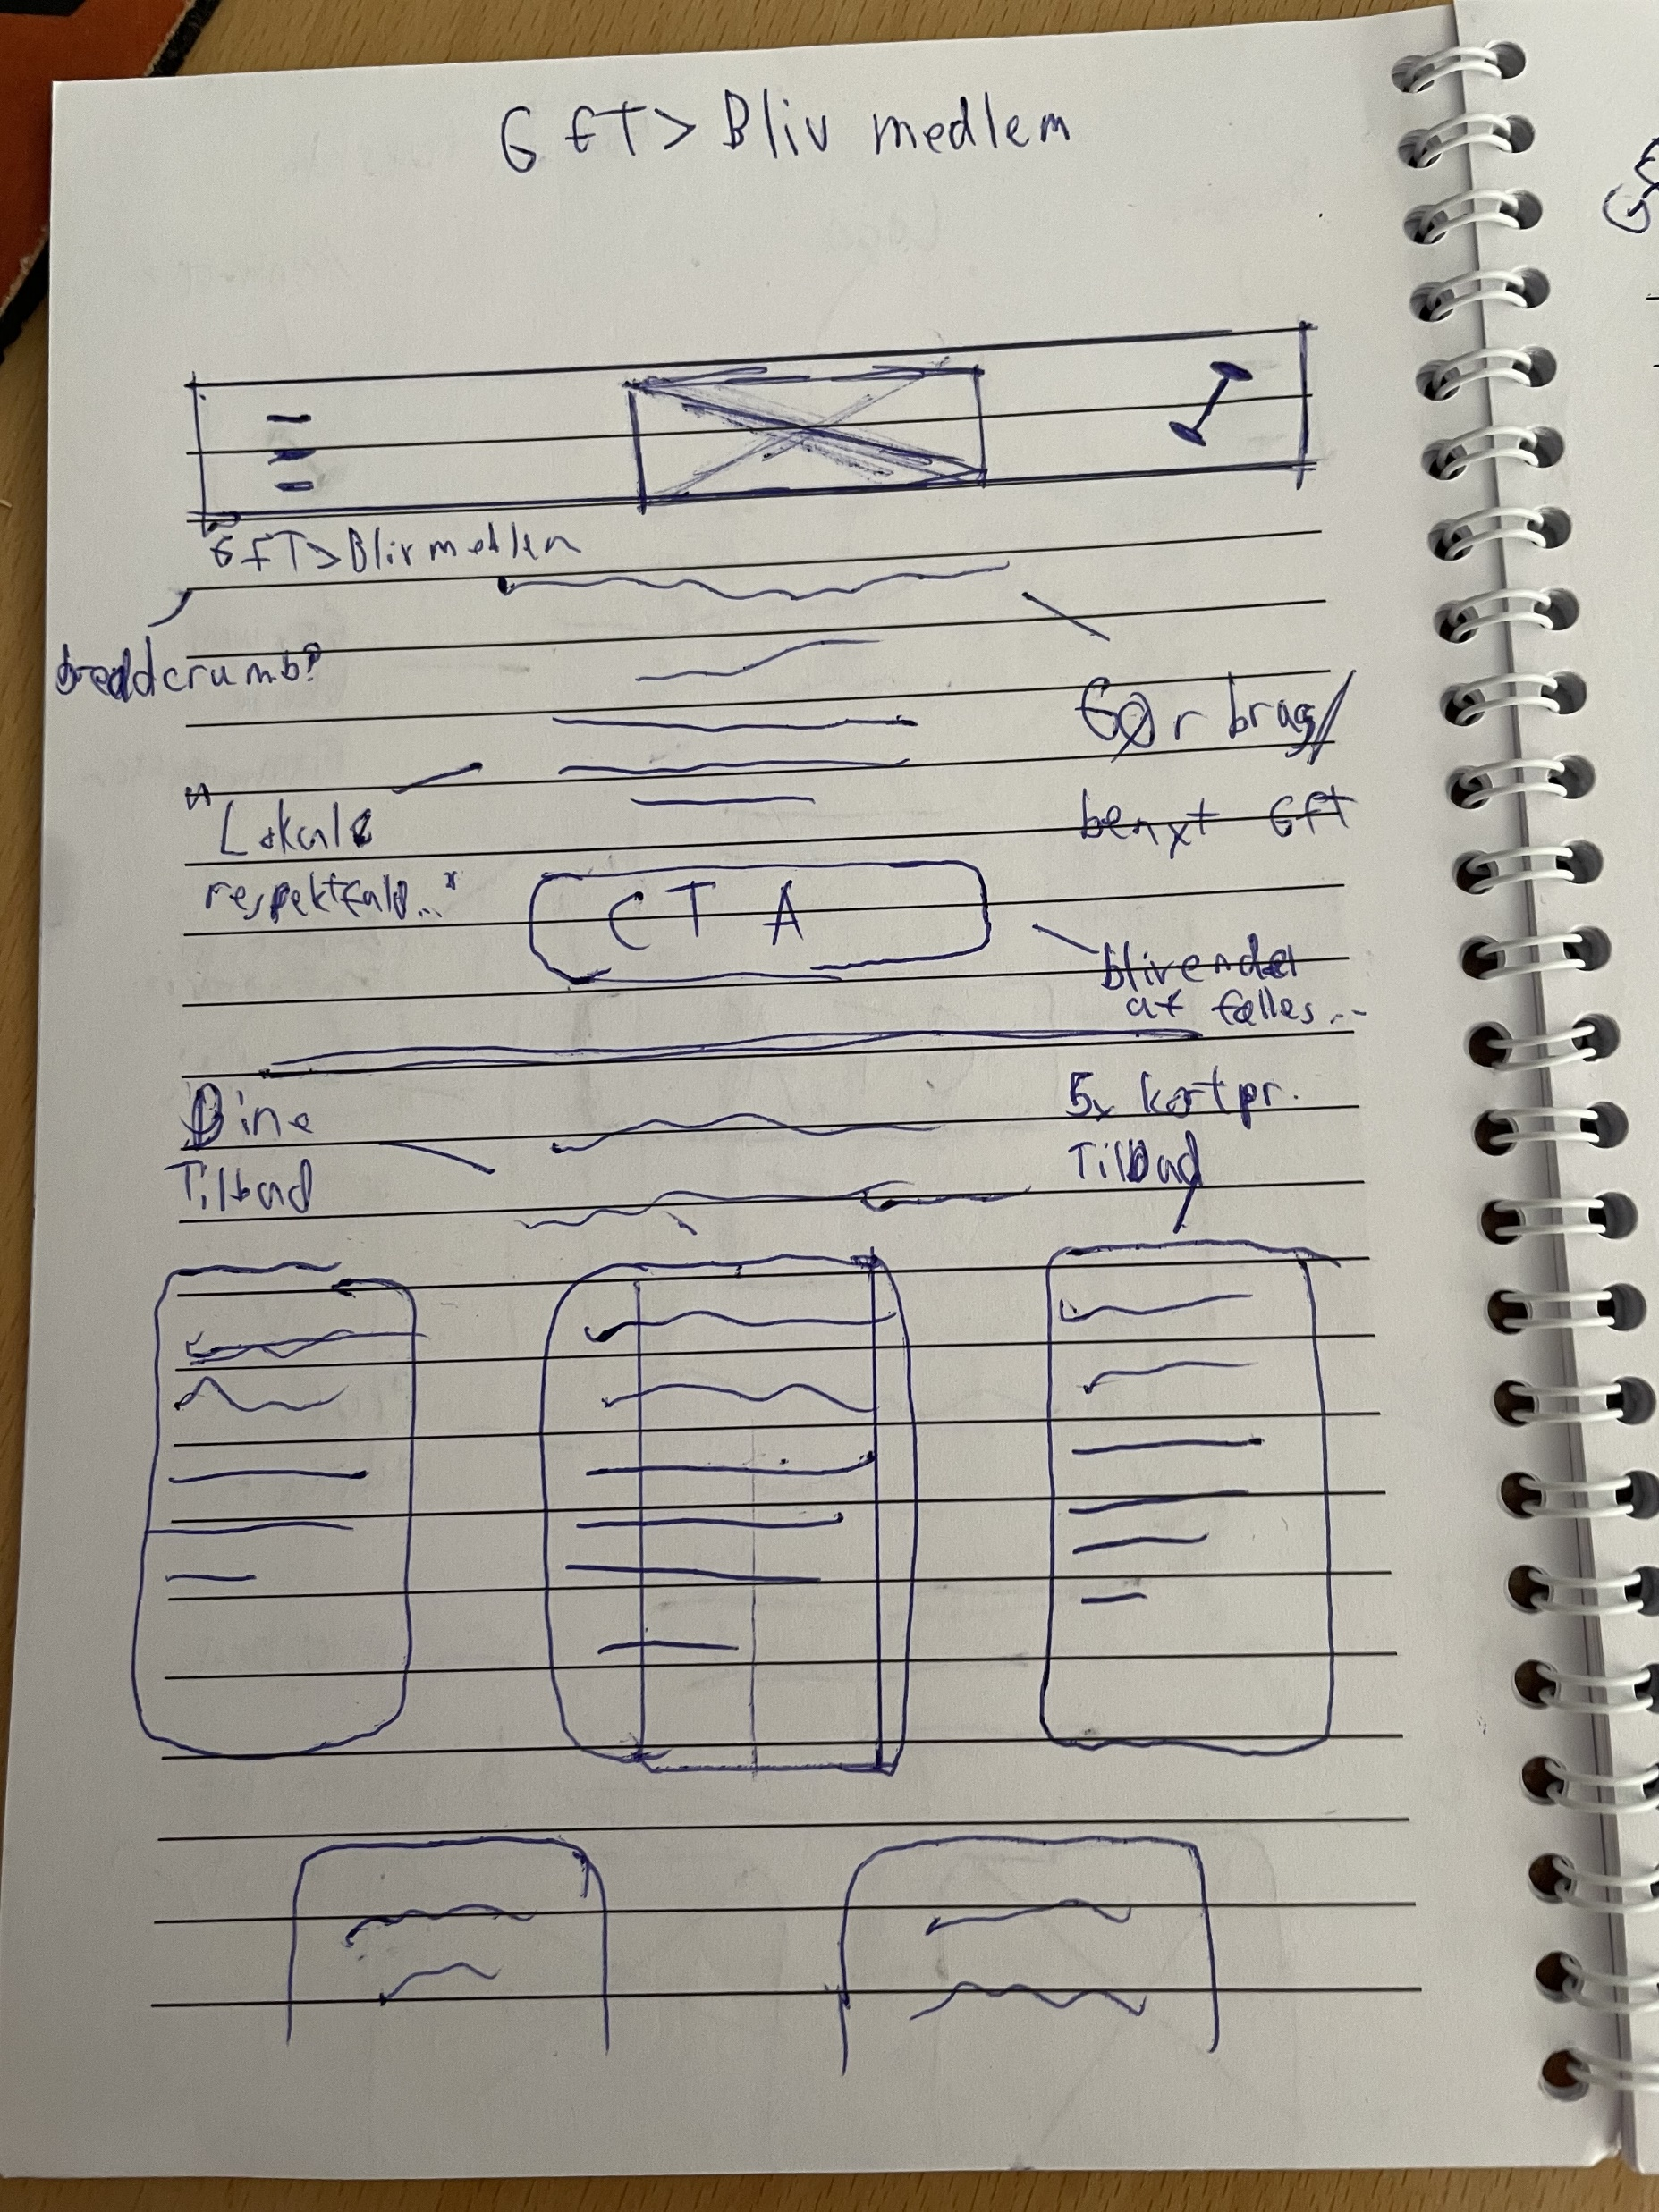 GFT > Bliv medlem
GFT > Bliv medlem
breadcrumb?
Gør brag/
benyt GFT
"Lokale
respektfuld..."
CTA
blivende
af fælles...
Dine
Tilbud
5x kort pr.
Tilbud